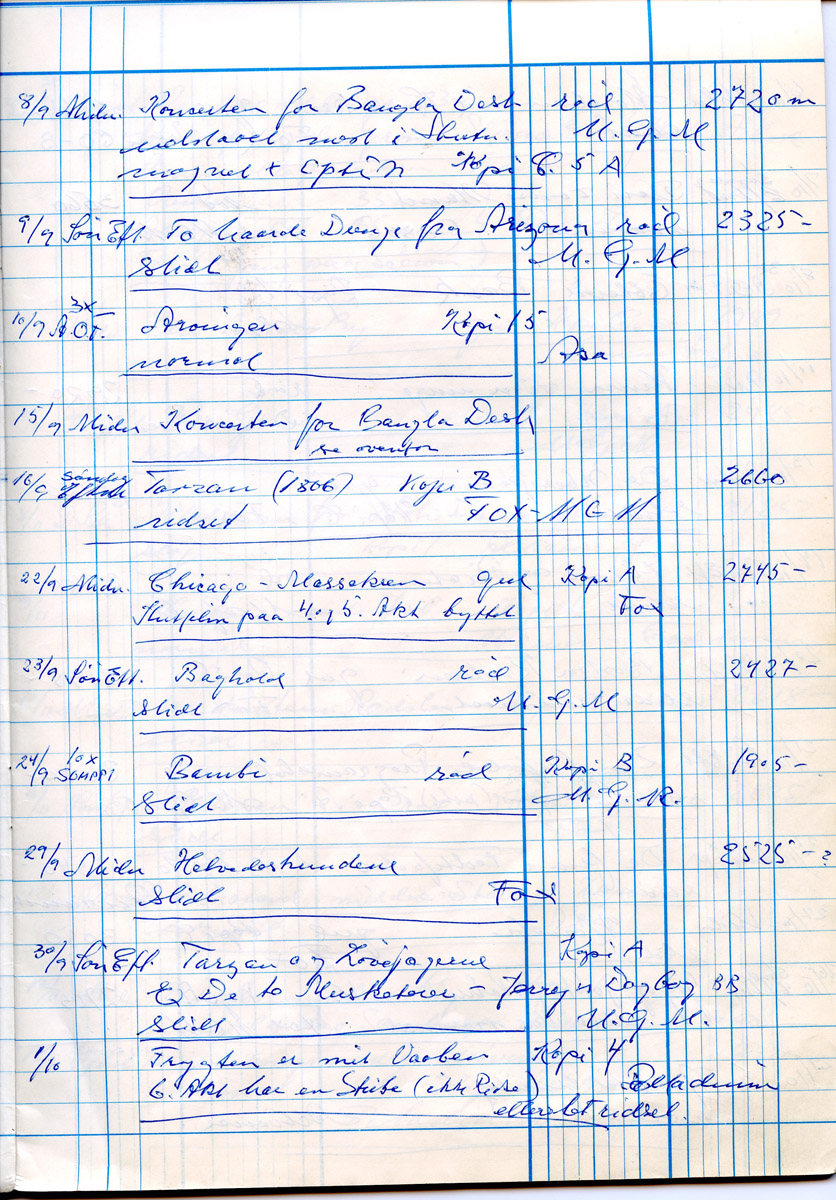 8/9 Midn. Koncerten for Bangla Desh rød 2720 m
M.G.M
magnet + optisk Kopi 5 A
9/9 SønEft. To haarde Drenge fra Arizona rød 2325-
Slidt M.G.M
3x
10/9 A.O.T. Kopi 15
normal Asa
15/9 Midn Koncerten for Bangla Desh
se ovenfor
16/9 Søndag Efterm Tarzan (1806) Kopi B 2660
ridset FOX-MGM
22/9 Midn. Chicago-Massakren gul Kopi A 2745-
paa 4. og 5. Akt byttet Fox
23/9 SønEft. Baghold rød 2427-
Slidt M.G.M
10x
24/9 Bambi rød Kopi B 1905-
Slidt M.G.M.
29/9 Midn Helvedeshundene 2525-?
Slidt Fox
30/9 SønEft. Tarzan og Løvejægerne Kopi A
& De to Musketerer - Jerrys Dagbog BB
Slidt M.G.M.
1/10 Frygten er mit Vaaben Kopi 4
6. Akt har en Stribe (ikke Ridse) Palladium
ellers let ridset.